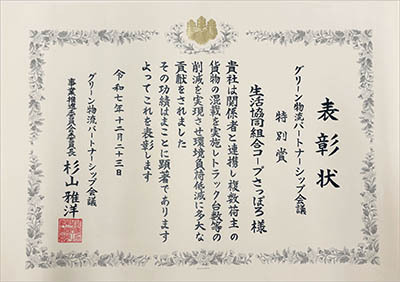 表彰状
グリーン物流パートナーシップ会議
特別賞
生活協同組合コープさっぽろ様
貴社は関係者と連携し複数荷主の
貨物の混載を実施しトラック台数等の
削減を実現させ環境負荷低減に多大な
貢献をされました
その功績はまことに顕著であります
よってこれを表彰します
令和七年十二月二十三日
グリーン物流パートナーシップ会議
事業推進委員会委員長 杉山雅洋